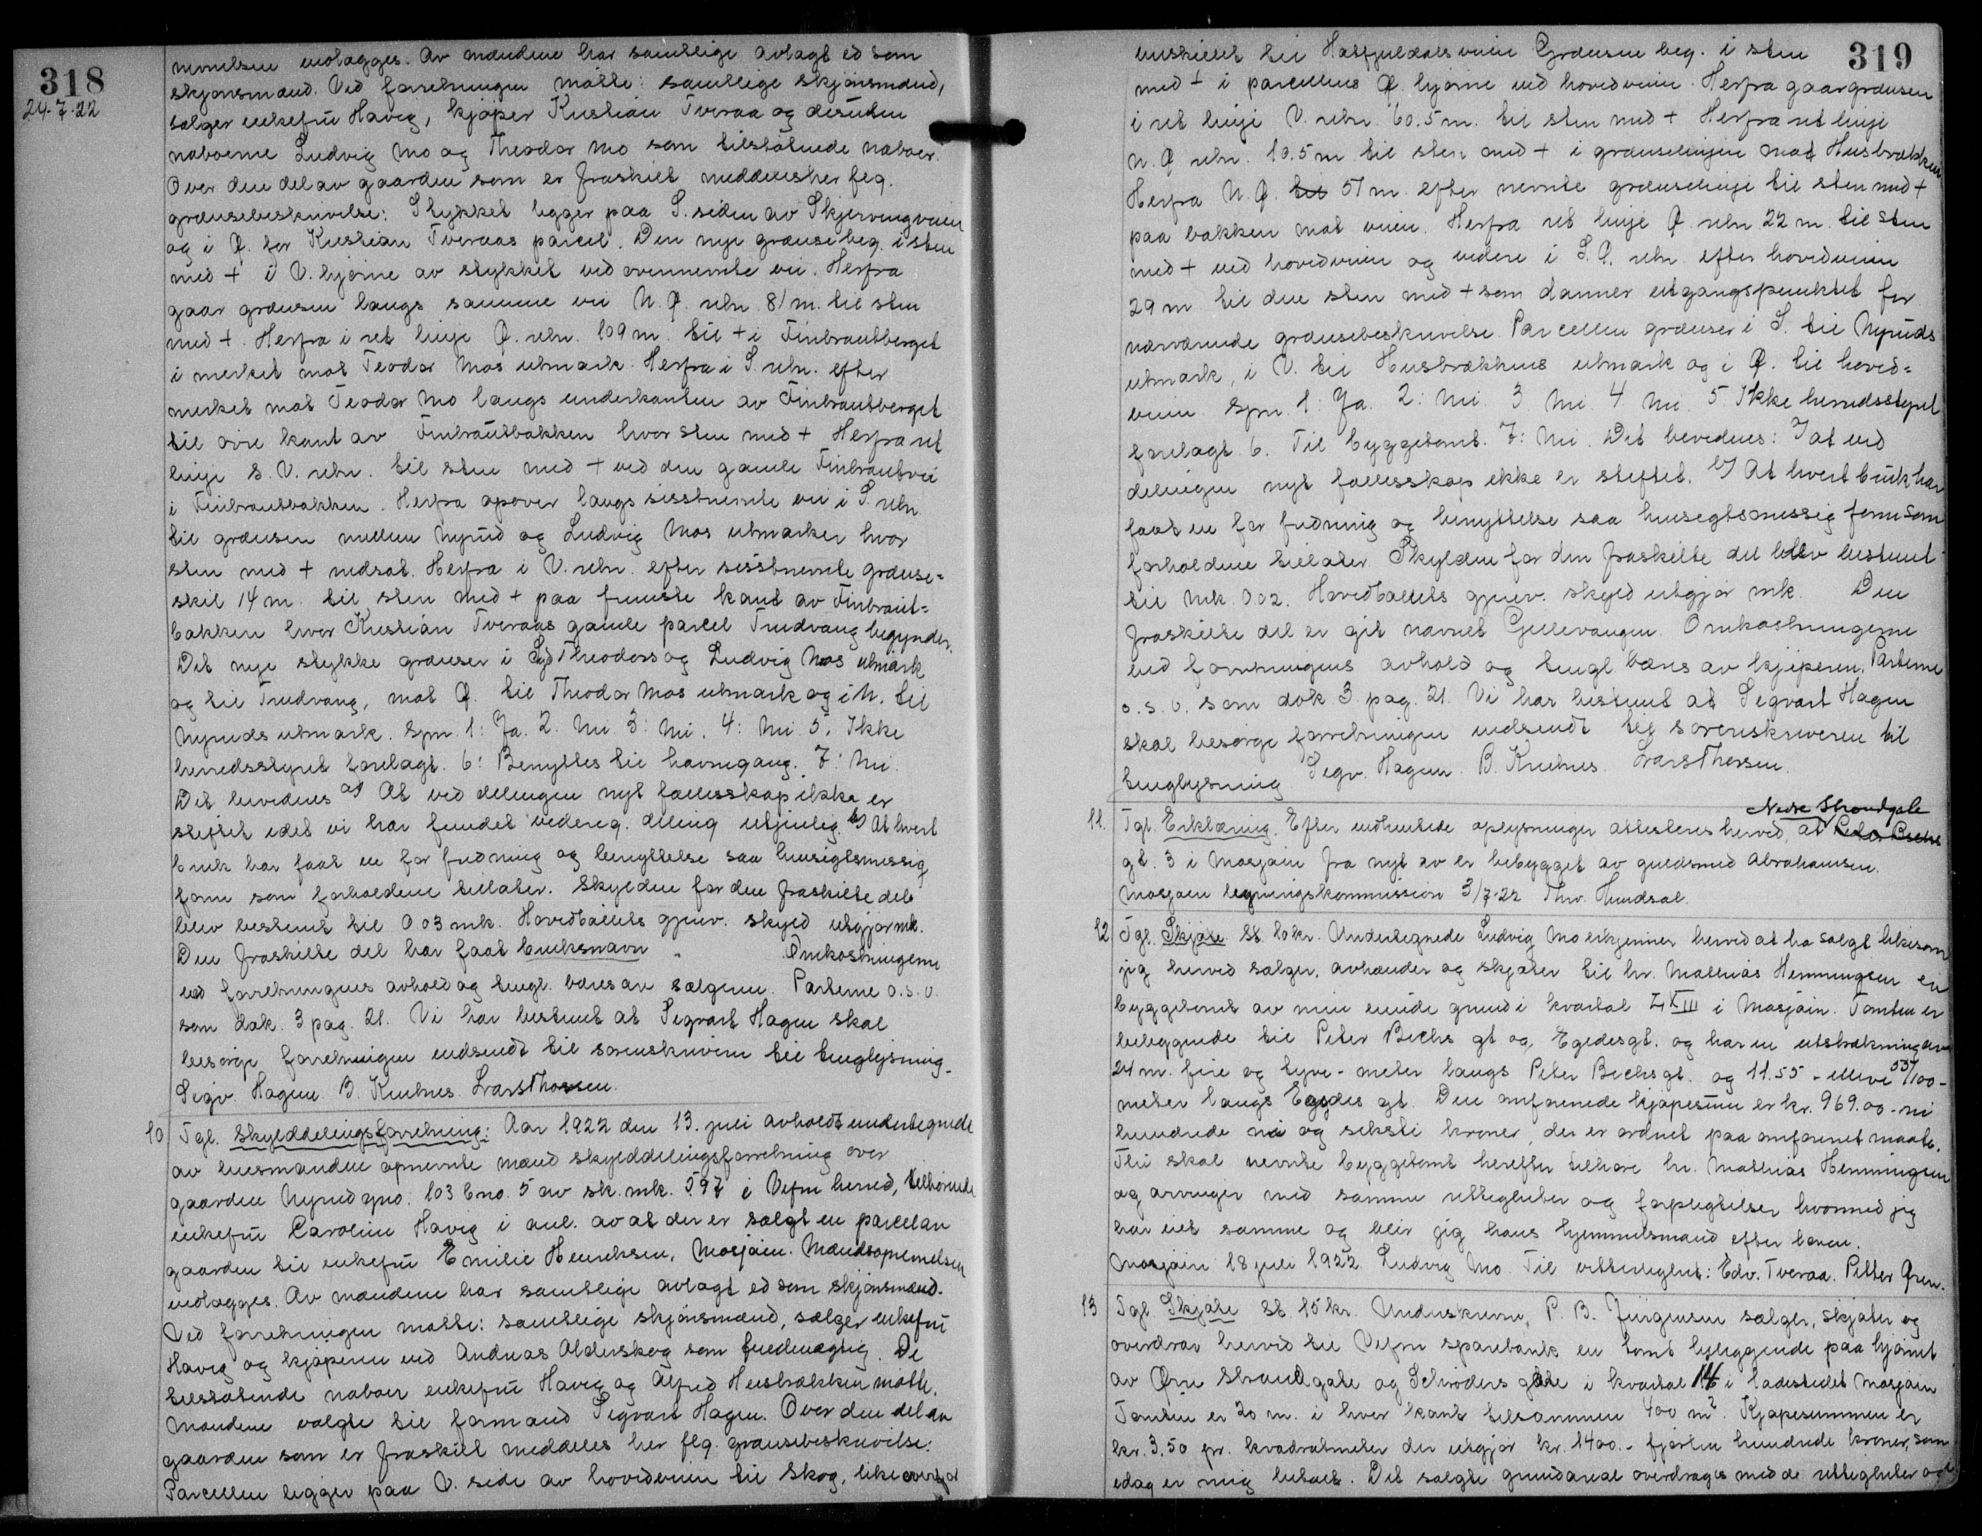 318
24.7.22
nevnelsen vedlægges. Av mændene har samtlige avlagt ed som
skjønsmænd. Ved forretningen møtte: samtlige skjønsmænd,
sælger enkefru Havig, kjøper Kristian Tveraa og desuten
naboerne Ludvig Mo og Theodor Mo som tilstøtende naboer.
Over den del av gaarden som er fraskilt meddeles her flg.
grænsebeskrivelse: Stykket ligger paa S. siden av Skjervengveien
og i Ø. for Kristian Tveraas parcel. Den nye grænse beg. i sten
med + i V. hjørne av stykket ved ovennevnte vei. Herfra
gaar grænsen langs samme vei N.Ø. retn. 81 m. til sten
med +. Herfra i ret linje Ø. retn. 109 m. til + i Finbrautberget
i merket mot Teodor Mos utmark. Herfra i S. retn. efter
merket mot Teodor Mo langs underkanten av Finbrautberget
til øvre kant av Finbrautbakken hvor sten med +. Herfra ret
linje S.V. retn. til sten med + ved den gamle Finbrautvei
i Finbrautbakken. Herfra opover langs sisstnevnte vei i S. retn.
til grænsen mellem Nyrud og Ludvig Mos utmarker hvor
sten med + nedsat. Herfra i V. retn. efter sisstnevnte grænse-
skil 14 m. til sten med + paa fremste kant av Finbraut-
bakken hvor Kristian Tveraas gamle parcel Trudvang begynder.
Det nye stykke grænser i Syd Theodors og Ludvig Mos utmark
og til Trudvang, mot Ø. til Theodor Mos utmark og i N. til
Nyruds utmark. Spm. 1: Ja. 2. Nei. 3: Nei. 4: Nei. 5: Ikke
herredsstyret forelagt. 6: Benyttes til havnegang. 7: Nei.
Det bevidnes a) At ved delingen nyt fællesskap ikke er
stiftet idet vi har fundet vedereg. deling utjenlig. b) At hvert
bruk har faat en for fredning og benyttelse saa hensigtsmessig
form som forholdene tillater. Skylden for den fraskilte del
blev bestemt til 0.03 mk. Hovedbølets gjenv. skyld utgjør mk.
Den fraskilte del har faat bruksnavn " Omkostningerne
ved forretningens avhold og tingl. bæres av sælgeren. Parterne o.s.v.
som dok. 3 pag. 21. Vi har bestemt at Segvart Hagen skal
besørge forretningen indsendt til sorenskriveren til tinglysning.
Segv. Hagen. B. Knutnes. Lars Thorsen.
10 Tgl. Skylddelingsforretning: Aar 1922 den 13. juli avholdt undertegnede
av lensmanden opnevnte mænd skylddelingsforretning over
gaarden Nyrud gno. 103 bno. 5 av sk. mk. 597 i Vefsn herred, tilhørende
enkefru Caroline Havig i anl. av at der er sælgt en parcel av
gaarden til enkefru Emilie Henriksen, Mosjøen. Mændsopnevnelsen
vedlægges. Av mændene har samtlige avlagt ed som skjønsmænd.
Ved forretningen møtte: samtlige skjønsmænd, sælger enkefru
Havig og kjøperen ved Andreas Alderskog som fuldmægtig. De
tilstøtende naboer enkefru Havig og Alfred Husbrækken møtte.
Mændene valgte til formand Segvart Hagen. Over den del av
gaarden som er fraskilt meddeles her flg. grænsebeskrivelse:
Parcellen ligger paa V. side av hovedveien til Skog, like overfor
319
veiskillet til Hatfjeldals veien. Grænsen beg. i sten
med + i parcellens Ø. hjørne ved hovedveien. Herfra gaar grænsen
i ret linje V. retn. 60.5 m. til sten med +. Herfra ret linje
N.Ø. retn. 10.5 m. til sten med + i grænselinjen mot Husbrækken
Herfra N.Ø. til 51 m. efter nevnte grænselinje til sten med +
paa bakken mot veien. Herfra ret linje Ø. retn. 22 m. til sten
med + ved hovedveien og videre i S.Ø. retn. efter hovedveien
29 m. til den sten med + som danner utgangspunktet for
nærværende grænsebeskrivelse. Parcellen grænser i S. til Nyruds
utmark, i V. til Husbrækkens utmark og i Ø. til hoved-
veien. Spm. 1: Ja. 2: Nei. 3 Nei 4 Nei. 5 Ikke herredsstyret
forelagt. 6. Til byggetomt. 7: Nei. Det bevidnes: 1) at ved
delingen nyt fællesskap ikke er stiftet. b) At hvert bruk har
faat en for fredning og benyttelse saa hensigtsmessig form som
forholdene tillater. Skylden for den fraskilte del blev bestemt
til mk. 0.02. Hovedbølets gjenv. skyld utgjør mk. Den
fraskilte del er git navnet Gillevangen. Omkostningerne
ved forretningens avhold og tingl. bæres av kjøperen. Parterne
o.s.v. som dok 3 pag. 21. Vi har bestemt at Segvart Hagen
skal besørge forretningen indsendt til sorenskriveren til
tinglysning. Segv. Hagen. B. Knutnes. Lars Thorsen.
Nedre Strandgate
11. Tgl. Erklæring. Efter indhentede oplysninger attesteres herved, at Peter Bechs
gt. 3 i Mosjøen fra nyt av er bebygget av guldsmed Abrahamsen.
Mosjøen ligningskommission 3/7-22 Thv. Hundsal.
12 Tgl. Skjøte st. 10 kr. Undertegnede Ludvig Mo erkjenner herved at ha solgt likesom
jeg herved sælger, avhænder og skjøter til hr. Mathias Hemmingsen en
byggetomt av min eiende grund i kvartal LXIII i Mosjøen. Tomten er
beliggende til Peter Bechs gt og Egedesgt. og har en utstrækning av
24 m. fire og tyve - meter langs Peter Bechs gt. og 11.55 - elleve 55/100 -
meter langs Egedes gt. Den omforenede kjøpesum er kr. 969.00 - ni
hundrede ni og seksti kroner, der er ordnet paa omforenet maate.
Thi skal nevnte byggetomt herefter tilhøre hr. Mathias Hemmingsen
og arvinger med samme rettigheter og forpligtelser hvormed jeg
har eiet samme og blir jeg hans hjemmelsmand efter loven.
Mosjøen 18 juli 1922 Ludvig Mo. Til vitterlighet: Edv. Tveraa. Petter Øren.
13 Tgl. Skjøte st. 15 kr. Underskrevne, P. B. Jürgensen sælger, skjøter og
overdrar herved til Vefsn sparebank en tomt beliggende paa hjørnet
av Øvre Strandgate og Schrøders gate i kvartal 14 i ladestedet Mosjøen
Tomten er 20 m. i hver kant tilsammen 400 m². Kjøpesummen er
kr. 3,50 pr. kvadratmeter der utgjør kr. 1400.- fjorten hundrede kroner, som
idag er mig betalt. Det solgte grundareal overdrages med de rettigheter og